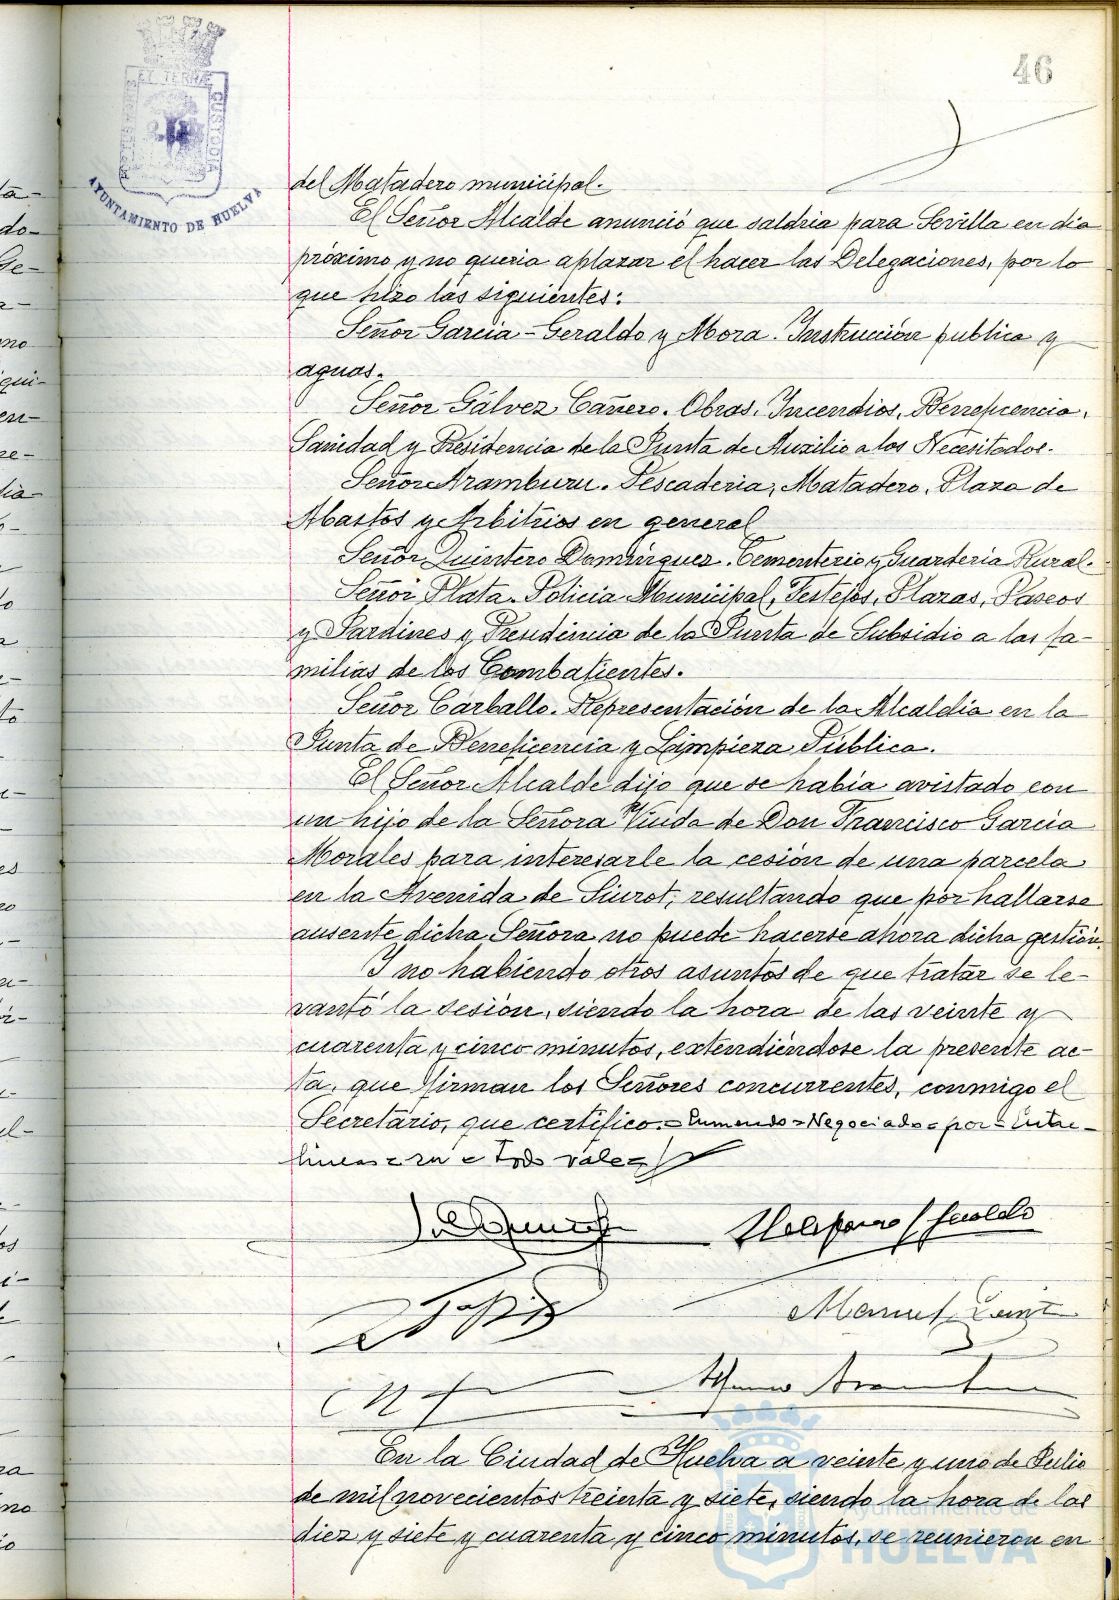 46
ET TERRÆ
CUSTODIA
AYUNTAMIENTO DE HUELVA
del Matadero municipal.
El Señor Alcalde anunció que saldria para Sevilla en dia
próximo y no queria aplazar el hacer las Delegaciones, por lo
que hizo las siguientes:
Señor Garcia-Geraldo y Mora. Instrucción publica y
aguas.
Señor Gálvez Cañero. Obras, Incendios, Beneficencia,
Sanidad y Presidencia de la Junta de Auxilio a los Necesitados.
Señor Aramburu. Pescaderia, Matadero, Plaza de
Abastos y Arbitrios en general
Señor Quintero Domínguez. Cementerio y Guarderia Rural.
Señor Plata. Policia Municipal, Festejos, Plazas, Paseos
y Jardines y Presidencia de la Junta de Subsidio a las fa-
milias de los Combatientes.
Señor Carballo. Representación de la Alcaldia en la
Junta de Beneficencia y Limpieza Pública.
El Señor Alcalde dijo que se había avistado con
un hijo de la Señora Viuda de Don Francisco García
Morales para interesarle la cesión de una parcela
en la Avenida de Siurot, resultando que por hallarse
ausente dicha Señora no puede hacerse ahora dicha gestión.
Y no habiendo otros asuntos de que tratar se le-
vantó la sesión, siendo la hora de las veinte y
cuarenta y cinco minutos, extendiéndose la presente ac-
ta, que firman los Señores concurrentes, conmigo el
Secretario, que certifico.=Enmendo=Negociado=por=Entre-
lineas=su=Todo vale=
Manuel
En la Ciudad de Huelva a veinte y uno de Julio
de mil novecientos treinta y siete, siendo la hora de las
diez y siete y cuarenta y cinco minutos, se reunieron en
Ayuntamiento de
HUELVA